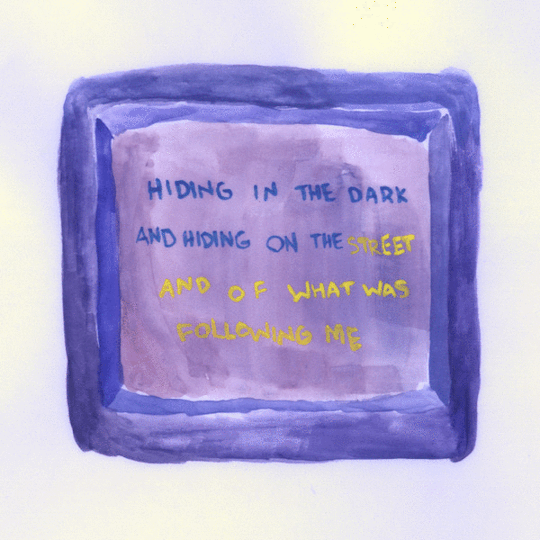 HIDING IN THE DARK
AND HIDING ON THE STREET
AND OF WHAT WAS
FOLLOWING ME